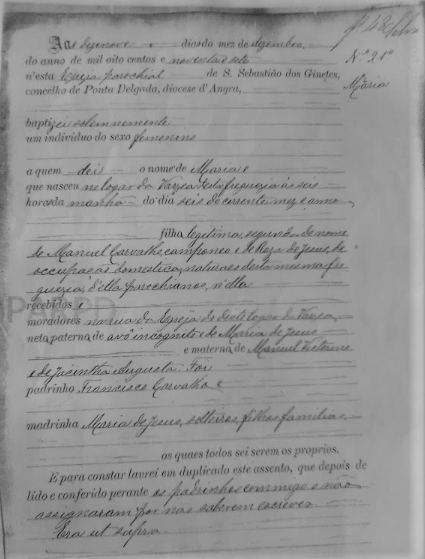 Aos dezenove dias do mez de dezembro,
do anno de mil oito centos e noventa e sete
n'esta Egreja parochial de S. Sebastião dos Ginetes,
concelho de Ponta Delgada, diocese d'Angra,
N.º 21º
Maria
baptizei solemnemente
um individuo do sexo femenino
a quem deis o nome de Maria e
que nasceu no logar da Varzea desta freguezia às seis
horas da manhã do dia seis do corrente mez e anno
filha legitima, segunda do nome
de Manuel Carvalho, camponeo e de Roza de Jesus, de
occupação domestica, naturaes desta mesma fre
guezia, d'ella parochianos, n'ella
recebidos e
moradores na rua da Egreja do dito logar da Varzea,
neta paterna de avô incognito e de Maria de Jesus
e materna de Manuel
e de Jacintha Augusta. Foi
padrinho Francisco Carvalho e
madrinha Maria de Jesus, solteiros, filhos familias,
os quaes todos sei serem os proprios.
E para constar lavrei em duplicado este assento, que depois de
lido e conferido perante os padrinhos commigo e não
assignaram por não saberem escrever
Era ut supra.
PARPD